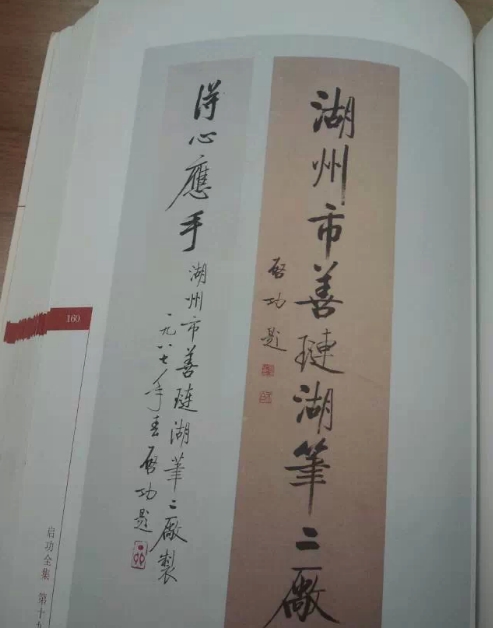 湖州市善琏湖筆二廠
啓功题
得心應手
湖州市善琏湖筆二廠製
一九八七年春啓功题
160
启功全集 第十